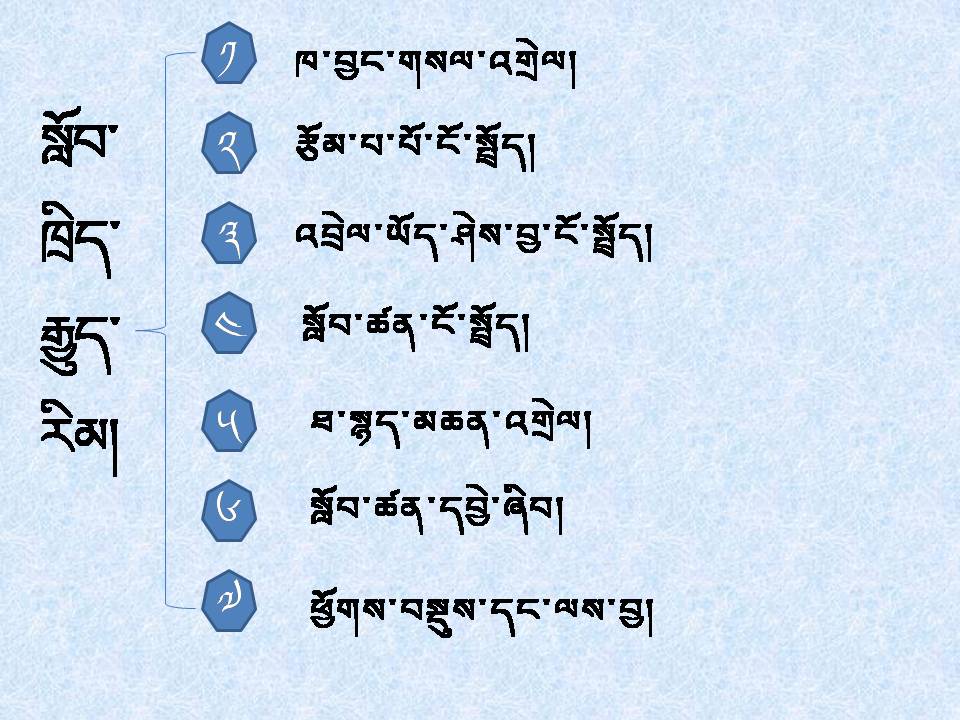 སློབ་
ཁྲིད་
རྒྱུད་
རིམ།
༡ ཁ་བྱང་གསལ་འགྲེལ།
༢ རྩོམ་པ་པོ་ངོ་སྤྲོད།
༣ འབྲེལ་ཡོད་ཤེས་བྱ་ངོ་སྤྲོད།
༤ སློབ་ཚན་ངོ་སྤྲོད།
༥ ཐ་སྙད་མཆན་འགྲེལ།
༦ སློབ་ཚན་དབྱེ་ཞིབ།
༧ ཕྱོགས་བསྡུས་དང་ལས་བྱ།